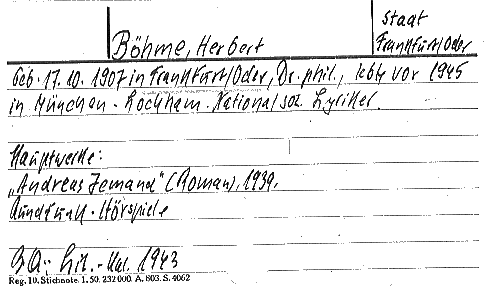 Staat
Böhme, Herbert Frankfurt/Oder
Geb. 17. 10. 1907 in Frankfurt/Oder, Dr. phil., lebte vor 1945
in München - Lochham. Nationalsoz. Lyriker.
Hauptwerke:
„Andreas Jemand" (Roman), 1939.
Rundfunk-Hörspiele
QA: Lit.-Kal. 1943
Reg. 10. Stichnote. 1. 50. 232000. A. 803. S. 4062